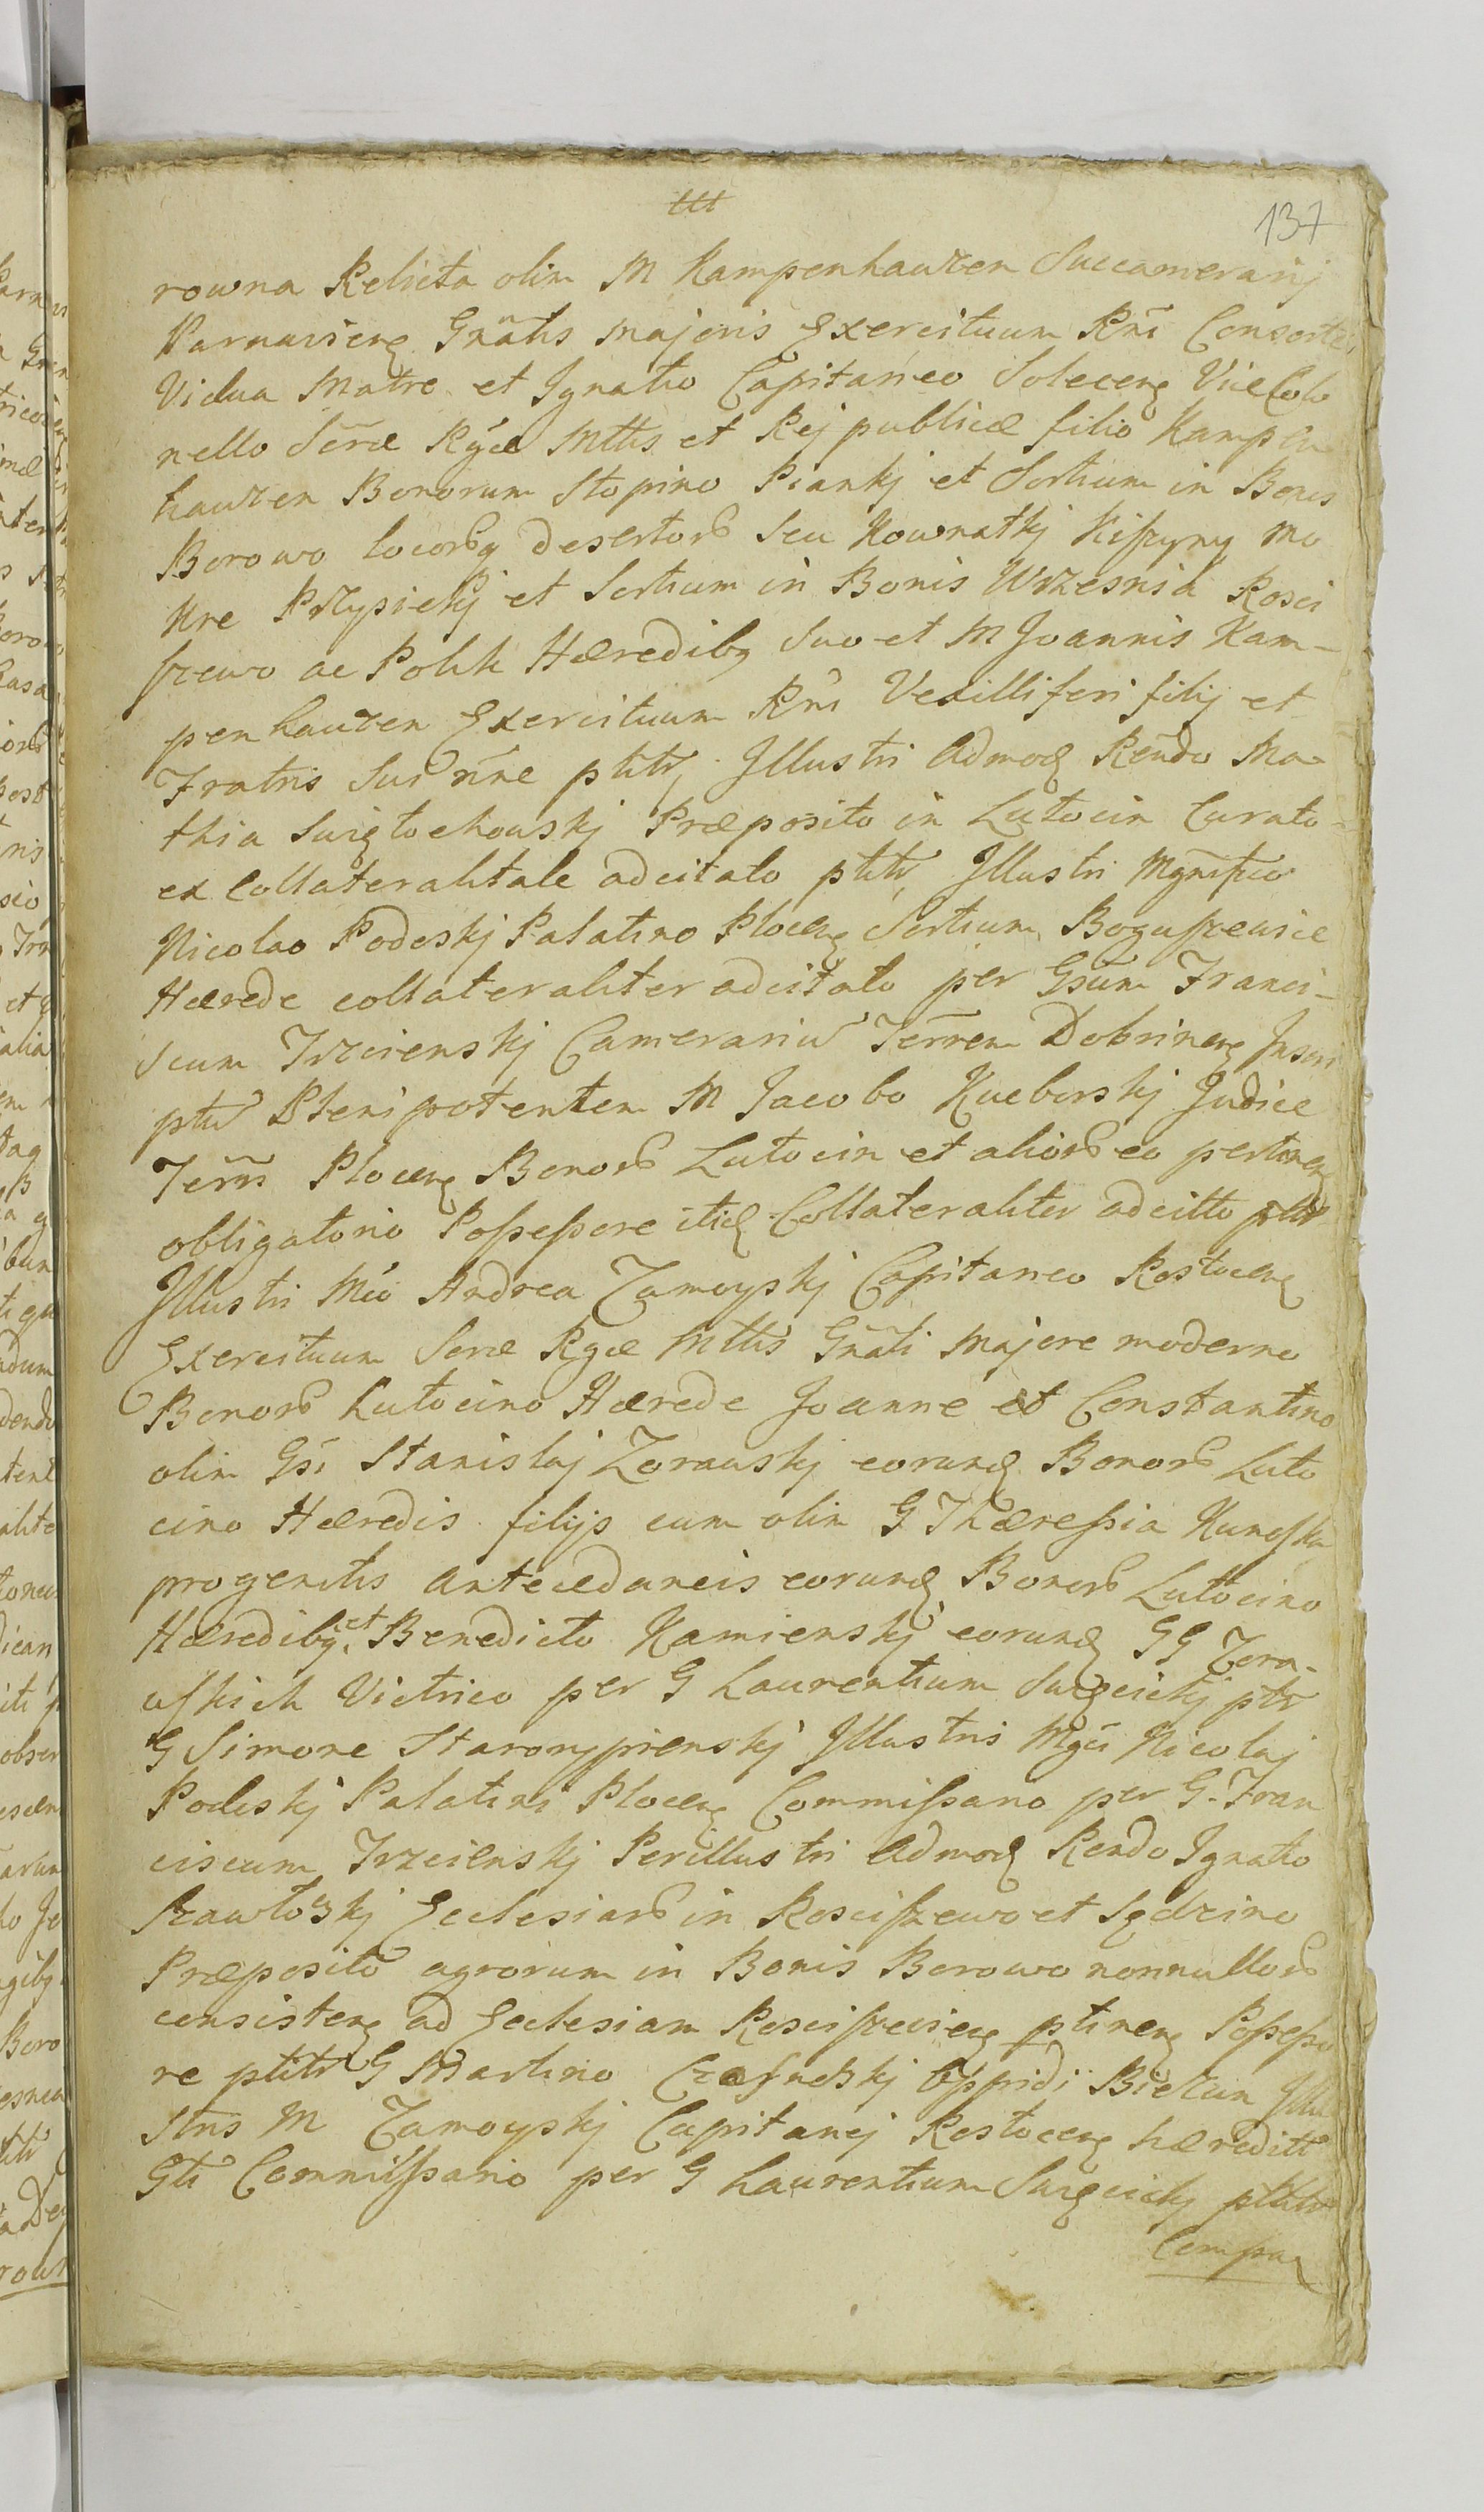 137
rowna Relicta olim M Kampenhauzen Succamerarij
Parnaviens Gnalis Majoris Exercituum Rni Consorte
Vidua Matre et Ignatio Capitaneo Solecens ViceColo
nello Sēræ Rgæ Mttis et Reipublicæ filio Kampen
hauzen Bonorum Stopino Piankj et Sortium in Bonis
Borowo locorq desertor Seu Kownatkj Kiszyny Mo
kre Przypiekj et Sortium in Bonis Wrzesnia Rosci
szewo ac Polik Hæredibq Suo et M Joannis Kam-
penhauzen Exercituum Rni Vexilliferi filij et
Fratris Sui nne ptitt Illustri Admod Rendo Ma-
thia Swiętochowskj Præposito in Lutocin Curato-
ex Collateralitate adcitato ptitt Illustri Mgnifico
Nicolao Podoskj Palatino Plocens Sortium Boguszewsie
Hærede collateraliter adcitato per Gsum Franci-
scum Trzcienskj Camerariu Terren Dobrinens Inscri
ptu Plenipotentem M Jacobo Kucborskj Judice
Terris Plocens Bonor Lutocin et alior eo pertinens
obligatorio Possessore itid Collateraliter adcitto ptitt
Illustri Mco Andrea Zamoyskj Capitaneo Rostocens
Exercituum Seræ Rgæ Mttis Gnali Majore moderno
Bonor Lutocino Hærede Joanne et Constantino
olim Gsi Stanislaj Zorawskj eorund Bonor Luto
cino Hæredis filijs cum olim G Thæressia Kunoska
progenitis antecedaneis eorund Bonor Lutocino
Hæredibq et Benedicto Kamienskj eorund GG Zora-
wskich Victrico per G Laurentium Swięcickj ptt
G Simone Staroryprienskj Illustris Mgci Nicolaj
Podoskj Palatini Plocens Commissario per G. Fran
ciscum Trzcienskj Perillustri Admod Rendo Ignatio
Szawłoskj Ecclesiar in Rosciszewo et Lędzino
Præposito agrorum in Bonis Borowo nonnullor
consistens ad Ecclesiam Rosciszeviens ptinens Possesso
re ptitt G Martino Czosnoskj Oppidi Biezun Illu
stris M Zamoyskj Capitanej Rostocens hæreditt
Gli Commissario per G Laurentium Swięcickj ptitt
Compar